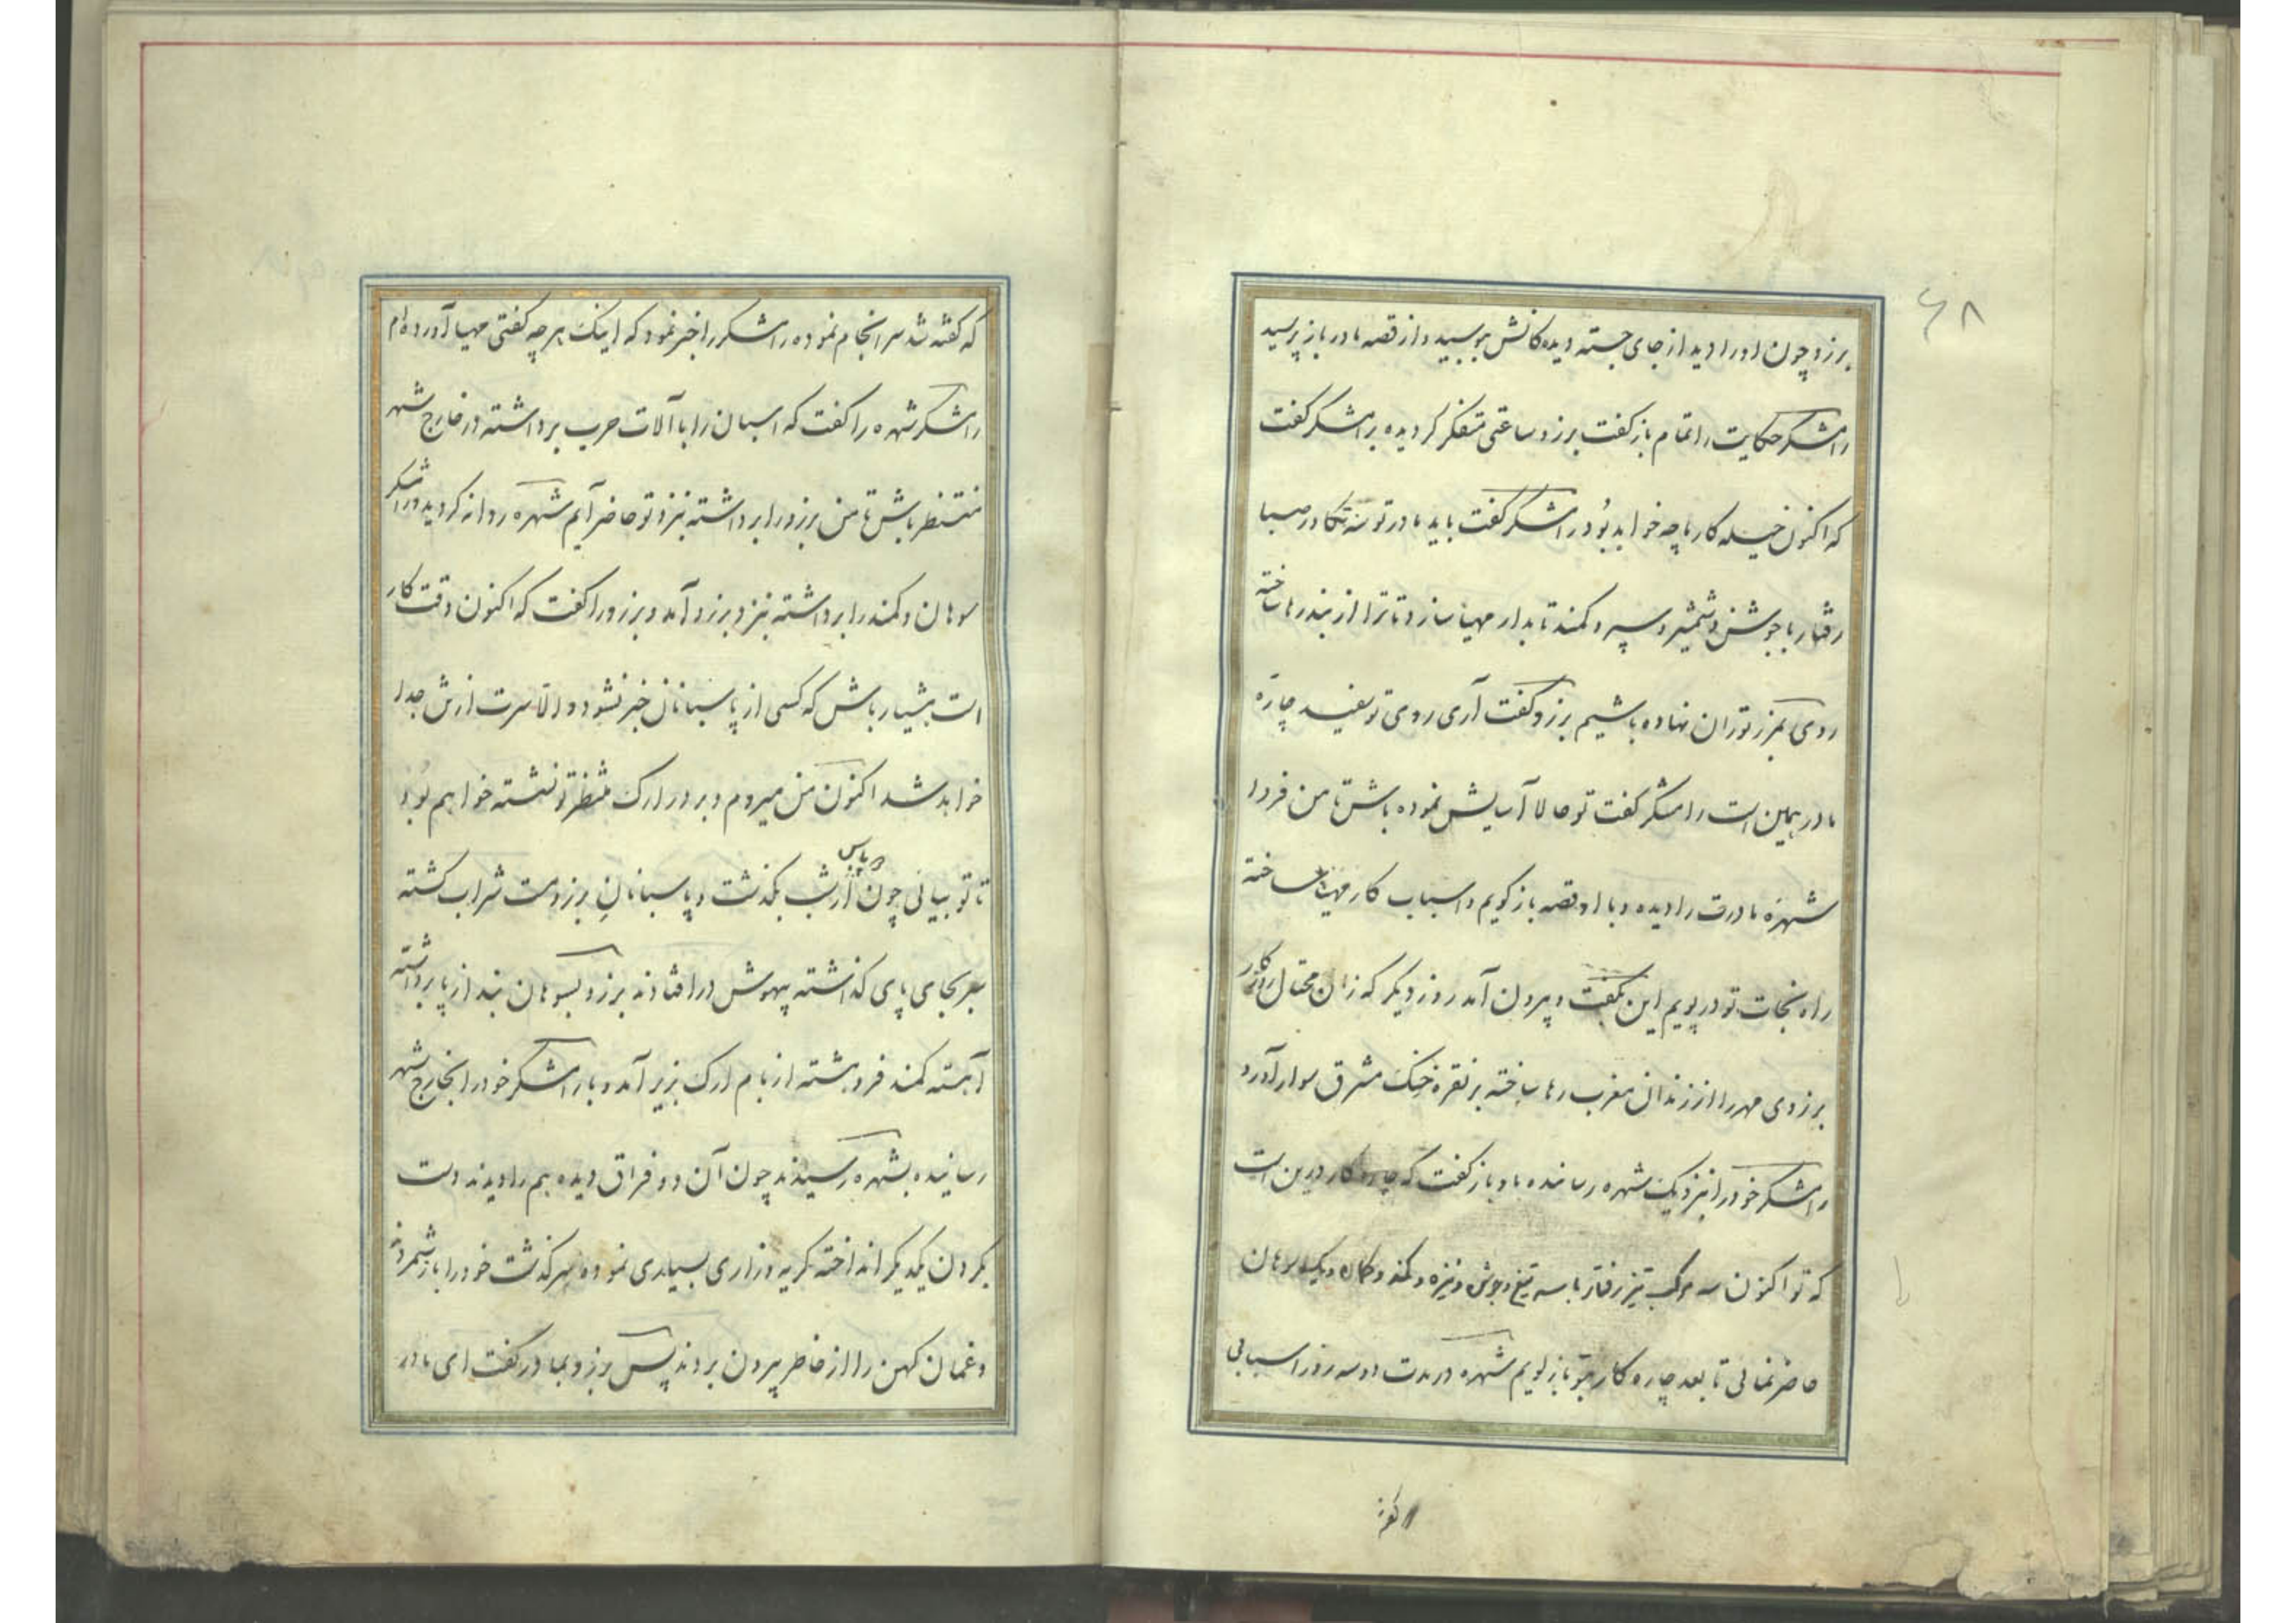 ۶۸
برزو چون او را دید از جای جسته دیدکانش ببوسید و از قصه مادر باز پرسید
رامشکر حکایت را تمام باز کفت برزو ساعتی متفکر کردیده برامشکر کفت
که اکنون حیله کار ما چه خواهد بُود رامشکر کفت باید مادر تو سه تکاور صبا
رفتار با جوشن و شمشیر و سپر و کمند تابدار مهیا سازد تا ترا از بند رها ساخته
روی بمرز توران نهاده باشیم برزو کفت آری روی تو سفید چاره
ما در همین است رامشکر کفت تو حالا آسایش نموده باش تا من فردا
شهره مادرت را دیده و با او قصه باز کویم و اسباب کار مهیا ساخته
راه نجات تو در پویم این بکفت و بیرون آمد روز دیکر که زان محتال روزکار
برزوی مهر را از زندان مغرب رها ساخته بر نقره خنک مشرق سوار آورد
رامشکر خود را بنزدیک شهره رسانده باو باز کفت که چاره کار درین است
که تو اکنون سه مرکب تیز رفتار با سه تیغ و جوشن و نیزه و کمند و کمان و یک سوهان
حاضر نمائی تا بعد چاره کار بتو باز کویم شهره در مدت دو سه روز اسبابی
که کفته شد سرانجام نموده رامشکر را خبر نمود که اینک هر چه کفتی مهیا آورده ام
رامشکر شهره را کفت که اسبان را با آلات حرب برداشته در خارج شهر
منتظر باش تا من برزو را برداشته بنزد تو حاضر آیم شهره روانه کردید و رامشکر
سوهان و کمند را برداشته بنزد برزو آمد و برزو را کفت که اکنون وقت کار
است هشیار باش که کسی از پاسبانان خبر نشود و الّا سرت از تن جدا
خواهد شد اکنون من میروم و بر در ارک منتظر تو نشسته خواهم بُود
تا تو بیائی چون دو پاس از شب بکذشت و پاسبانانِ برزو مست شراب کشته
سر بجای پای کذاشته بیهوش در افتادند برزو بسوهان بند از پا برداشته
آهسته کمند فرو هشته از بام ارک بزیر آمد و با رامشکر خود را بخارج شهر
رسانیده بشهره رسیدند چون آن دو فراق دیده هم را دیدند دست
بکردن یکدیکر انداخته کریه و زاری بسیاری نموده سرکذشت خود را باز شمردند
و غمان کهن را از خاطر بیرون بردند پس برزو بمادر کفت ای مادر